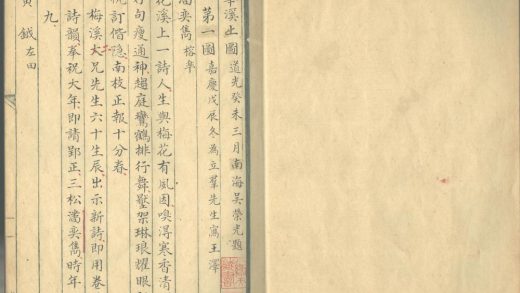 溪山圖 道光癸未三月南海吳榮光題
第一圖 嘉慶戊辰冬為立羣先生寫 王澤
潘奕雋 榕皋
花溪上一詩人生與梅花有夙因嗅得寒香清
句瘦通神趨庭鸞鶴排行舞壓架琳琅耀眼
訂偕隱南枝正報十分春
梅溪大兄先生六十生辰出示新詩即用卷
詩韻奉祝大年即請郢正三松潘奕雋時年
九
黃鉞 左田